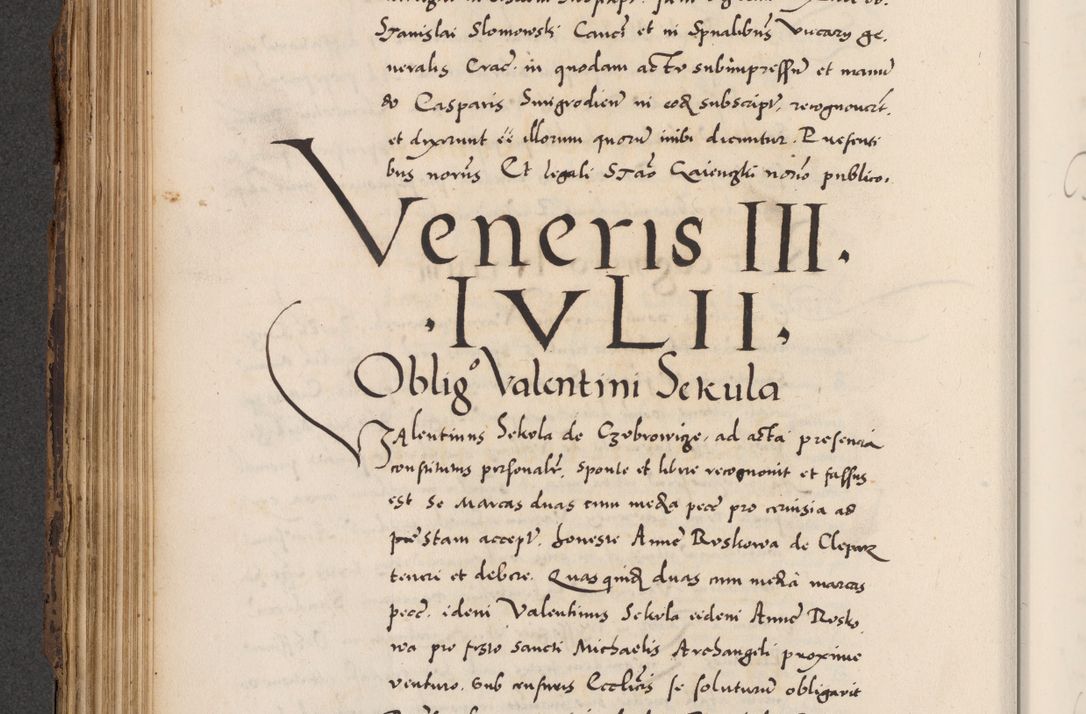 Stanislai Slomowski Canci et in Spualibus Vicary ge,
neralis Crac. in quodam acto subimpressu et manu
do Casparis Smigrodien in eoq subscript. recognoucrt.
et dixerunt ee illorum quoru inibi dicuntur. Presenti
bus noruus Et legali Stao notrio publico.
Veneris III.
.IVLII.
Obligo Valentini Sekula
Valentinus Sekola de Czebrowige, ad acta presencia
constitutus personalr. sponte et libere recognouit et fassus
est se marcas duas cum media pecc pro ceruisia ad
prestam accept. honeste Anne Boskowa de Clepar
teneri et debere. Quas quidem duas cum media marcas
pecc. idem Valentinus Sekula eidem Anne Bosko,
wa pro festo sancti Michaelis Archangeli proxime
venturo. Sub censuris Ecclicis se soluturum obligauit